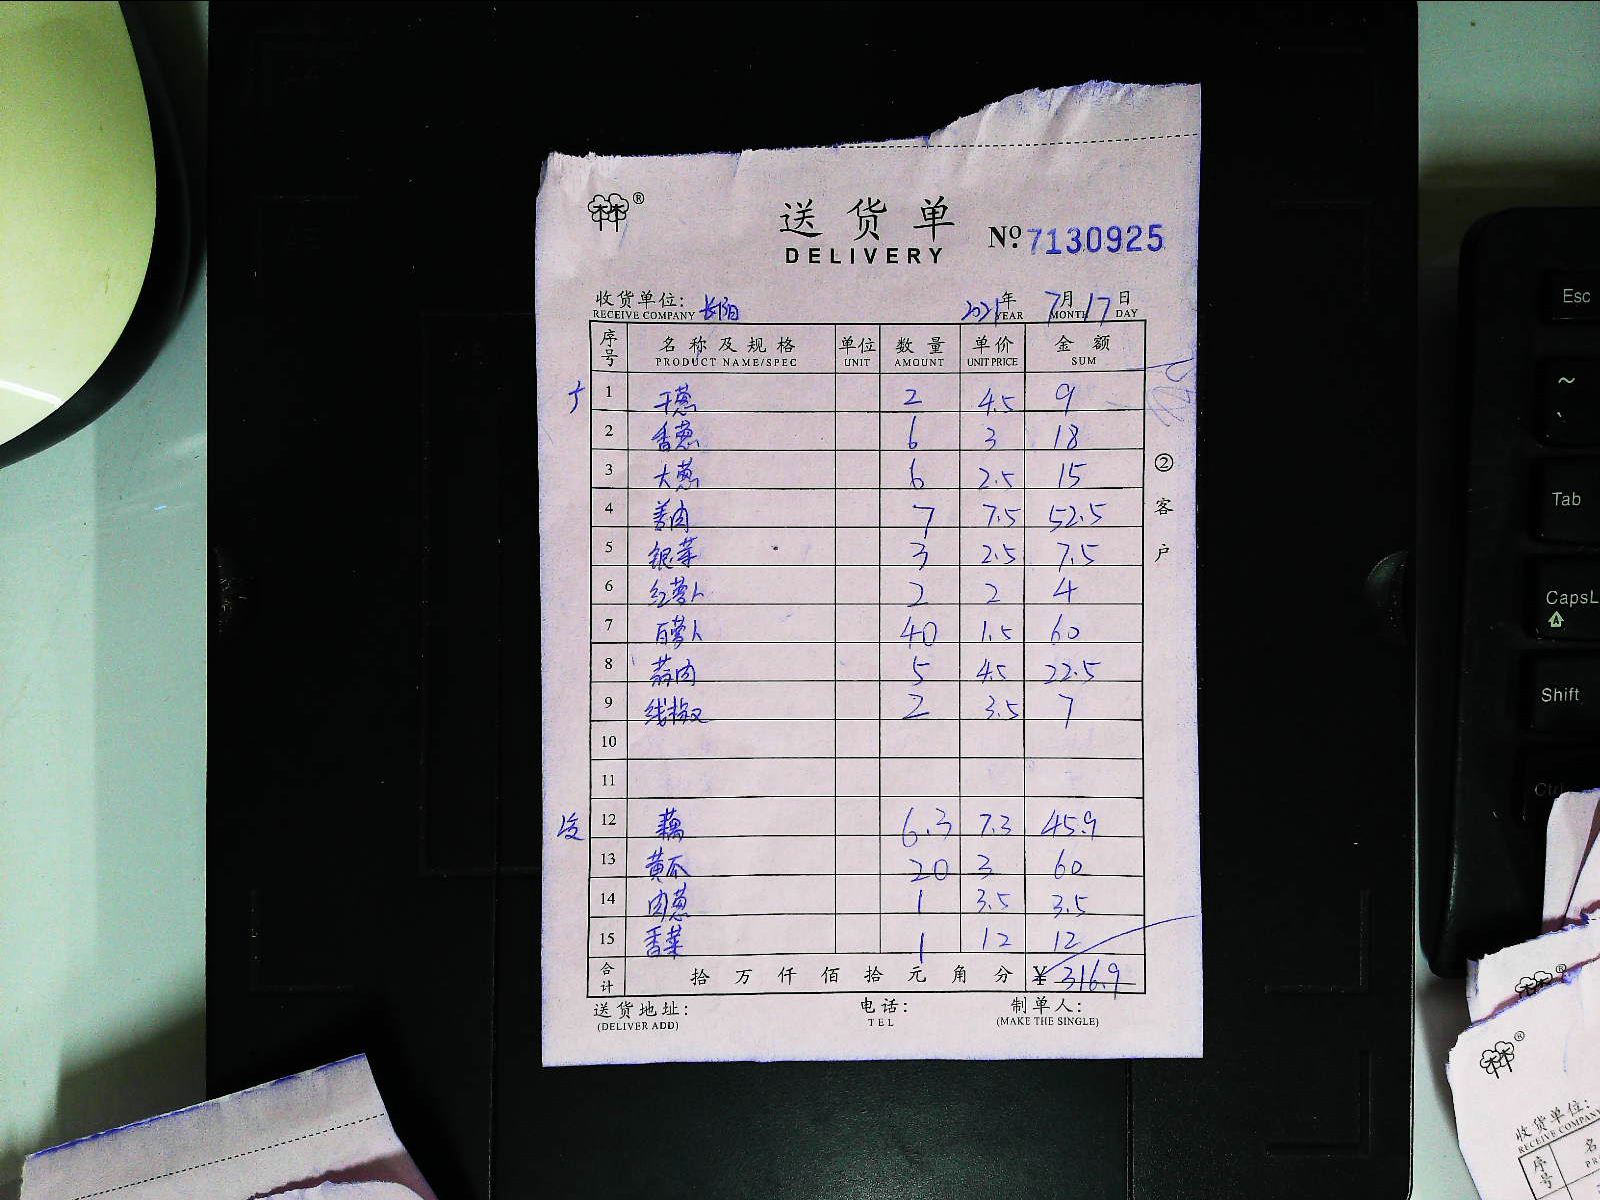 送货单
DELIVERY
№ 7130925
收货单位: 长阳 2021年 7月 17日
RECEIVE COMPANY YEAR MONTH DAY
序号 名称及规格 单位 数量 单价 金额
PRODUCT NAME/SPEC UNIT AMOUNT UNIT PRICE SUM
1 干葱 2 4.5 9
2 香葱 6 3 18
3 大葱 6 2.5 15
4 姜肉 7 7.5 52.5
5 银芽 3 2.5 7.5
6 红萝卜 2 2 4
7 白萝卜 40 1.5 60
8 蒜肉 5 4.5 22.5
9 线椒 2 3.5 7
10
11
12 藕 6.3 7.3 45.9
13 黄瓜 20 3 60
14 肉葱 1 3.5 3.5
15 香菜 1 12 12
合计 拾万仟佰拾元角分 ¥ 316.9
送货地址: 电话: 制单人:
(DELIVER ADD) TEL (MAKE THE SINGLE)
②客户
Esc
~
Tab
CapsL
Shift
Ctrl
收货单位:
RECEIVE COMPANY
序号